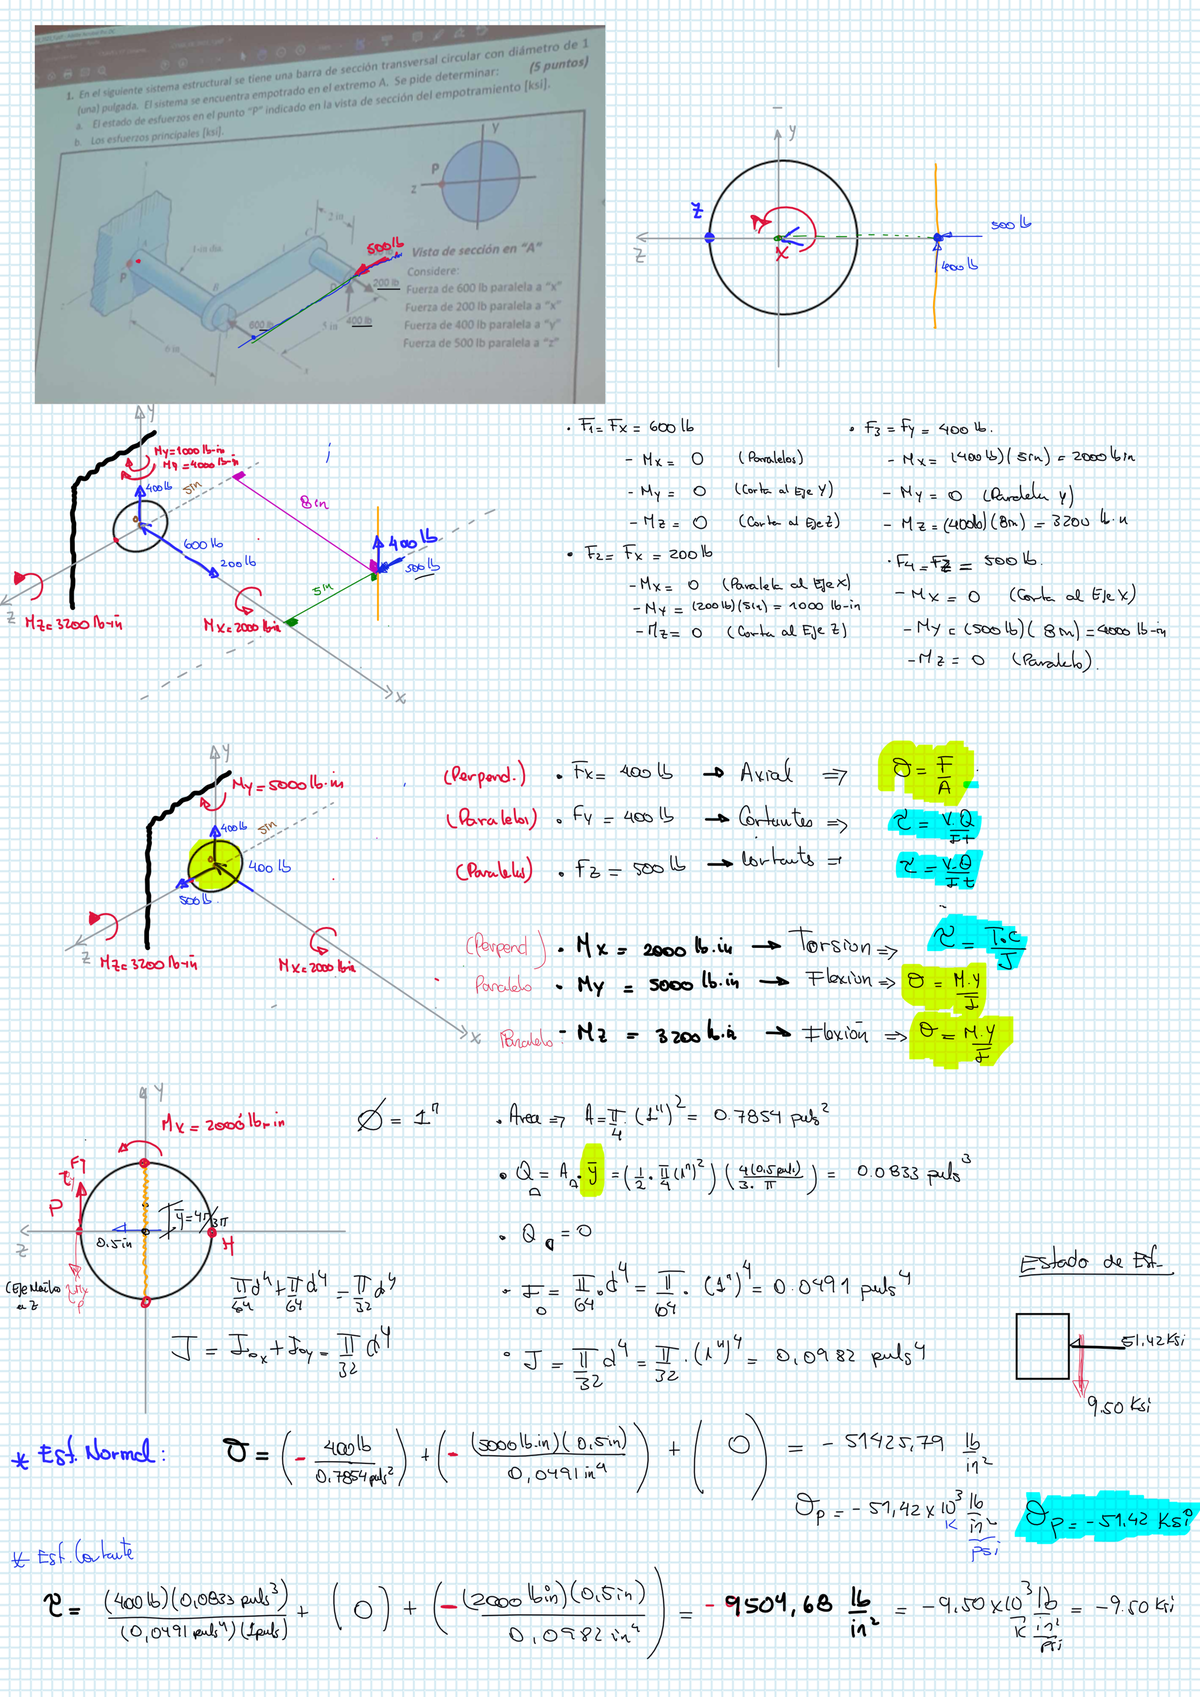 1. En el siguiente sistema estructural se tiene una barra de sección transversal circular con diámetro de 1
(una) pulgada. El sistema se encuentra empotrado en el extremo A. Se pide determinar: (5 puntos)
a. El estado de esfuerzos en el punto "P" indicado en la vista de sección del empotramiento [ksi].
b. Los esfuerzos principales [ksi].
y
P
z
2 in
1-in dia.
C
A
P
B
500 lb
200 lb
600 lb
400 lb
5 in
6 in
x
Vista de sección en "A"
Considere:
Fuerza de 600 lb paralela a "x"
Fuerza de 200 lb paralela a "x"
Fuerza de 400 lb paralela a "y"
Fuerza de 500 lb paralela a "z"
y
Z
Z
X
500 lb
400 lb
y
My=1000 lb-in
My=4000 lb-in
400 lb
5in
8in
600 lb
200 lb
400 lb
500 lb
5in
Z
Mz=3200 lb-in
Mx=2000 lb.in
x
• F1 = Fx = 600 lb
- Mx = 0 (Paralelos)
- My = 0 (Corta al Eje Y)
- Mz = 0 (Corta al Eje Z)
• F2 = Fx = 200 lb
- Mx = 0 (Paralela al Eje X)
- My = (200 lb)(5in) = 1000 lb-in
- Mz = 0 (Corta al Eje Z)
• F3 = Fy = 400 lb.
- Mx = (400 lb)(5in) = 2000 lb in
- My = 0 (Paralela Y)
- Mz = (400lb)(8in) = 3200 lb.in
• F4 = Fz = 500 lb.
- Mx = 0 (Corta al Eje X)
- My = (500 lb)(8in) = 4000 lb-in
- Mz = 0 (Paralelo).
y
My = 5000 lb.in
400 lb
5in
400 lb
500 lb
Z
Mz=3200 lb-in
Mx=2000 lb-in
x
(Perpend.) • Fx = 400 lb → Axial ⇒ σ = F/A
(Paralelos) • Fy = 400 lb → Cortantes ⇒ τ = V.Q/I t
(Paralelas) • Fz = 500 lb → Cortante ⇒ τ = V.Q/I t
(Perpend) • Mx = 2000 lb.in → Torsion ⇒ τ = T.c/J
Paralelo • My = 5000 lb.in → Flexion ⇒ σ = M.Y/I
Paralelo • Mz = 3200 lb.in → Flexión ⇒ σ = M.Y/I
y
Mx = 2000 lb-in
Fy
τy
P
ȳ=4r/3π
0.5in
Z
H
(Eje Neutro
a z)
τMx
P
Ø = 1"
• Area ⇒ A = π/4 . (1")² = 0.7854 puls²
• Q = A . ȳ = (1/2 . π/4 (1")²) (4(0.5puls)/3. π) = 0.0833 puls³
• Q = 0
π/64 d⁴ + π/64 d⁴ = π/32 d⁴
• I = π/64 . d⁴ = π/64 . (1")⁴ = 0.0491 puls⁴
J = Iox + Ioy = π/32 d⁴
• J = π/32 d⁴ = π/32 . (1")⁴ = 0,0982 puls⁴
Estado de Esf.
51,42 Ksi
9.50 Ksi
* Esf. Normal: σ = (- 400lb/0.7854 puls²) + (- (5000 lb.in)(0,5in)/0,0491 in⁴) + (0) = - 51425,79 lb/in²
σp = - 51,42 x 10³ lb/in²
K
psi
σp = - 51.42 Ksi
* Esf. Cortante
τ = (400 lb)(0,0833 puls³)/(0,0491 puls⁴)(1puls) + (0) + (- (2000 lb in)(0,5in)/0,0982 in⁴) = - 9504,68 lb/in² = - 9,50 x 10³ lb/in² = - 9.50 Ksi
K
Psi